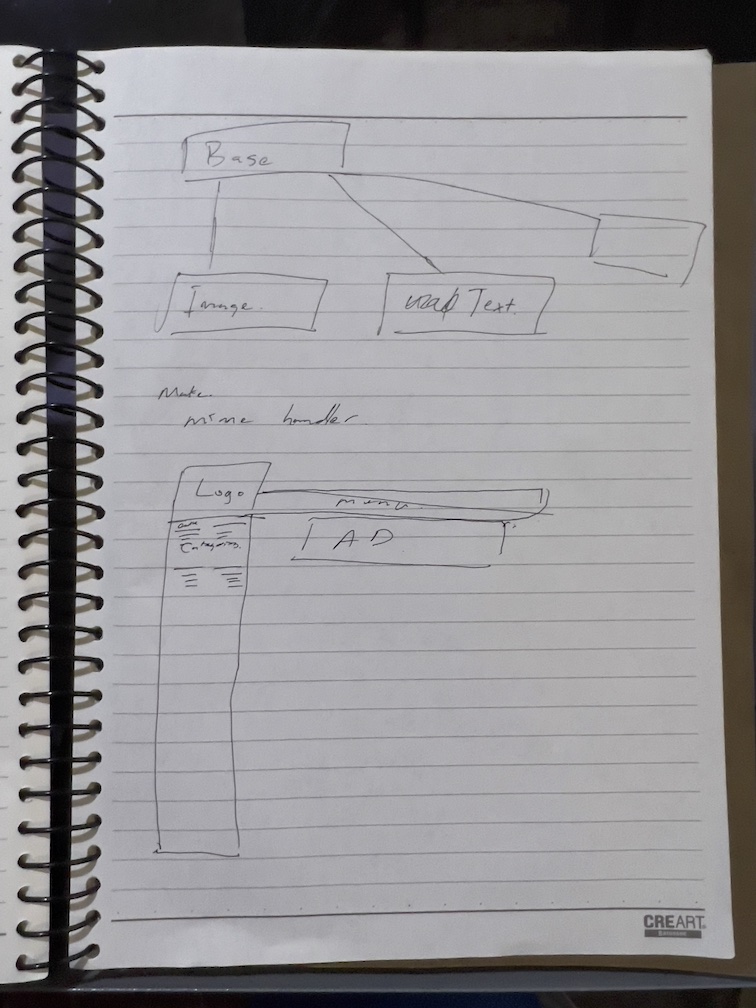 Base
Image.
Text.
Make.
mime handler.
Logo
menu.
Categories.
AD
CREART